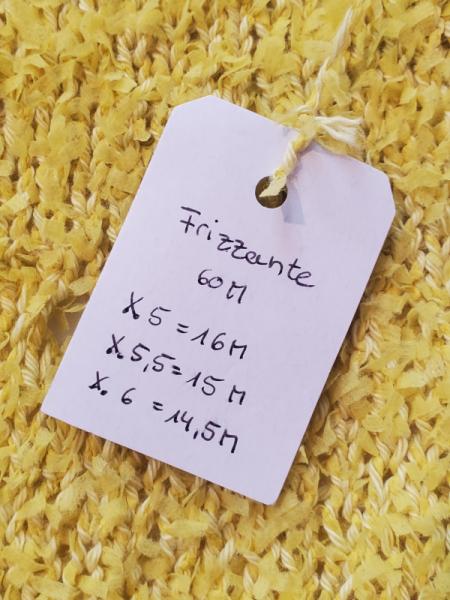 Frizzante
60 M
X 5 = 16 M
X 5,5 = 15 M
X. 6 = 14,5 M